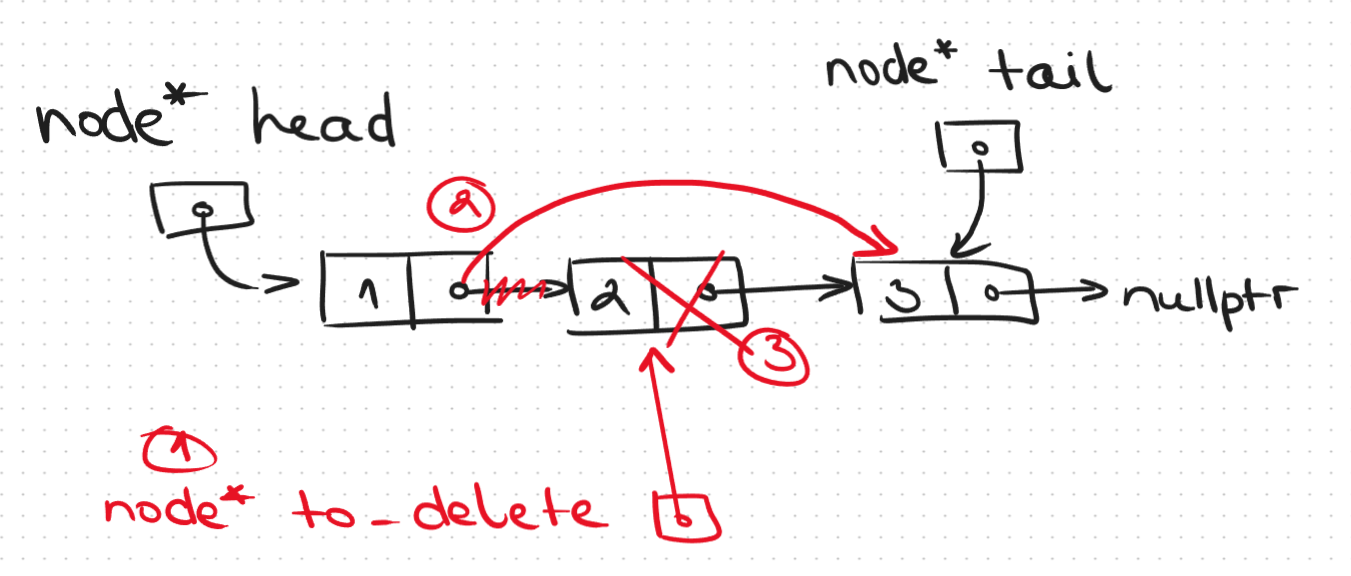 node* tail
node* head
2
1
2
3
nullptr
3
1
node* to_delete